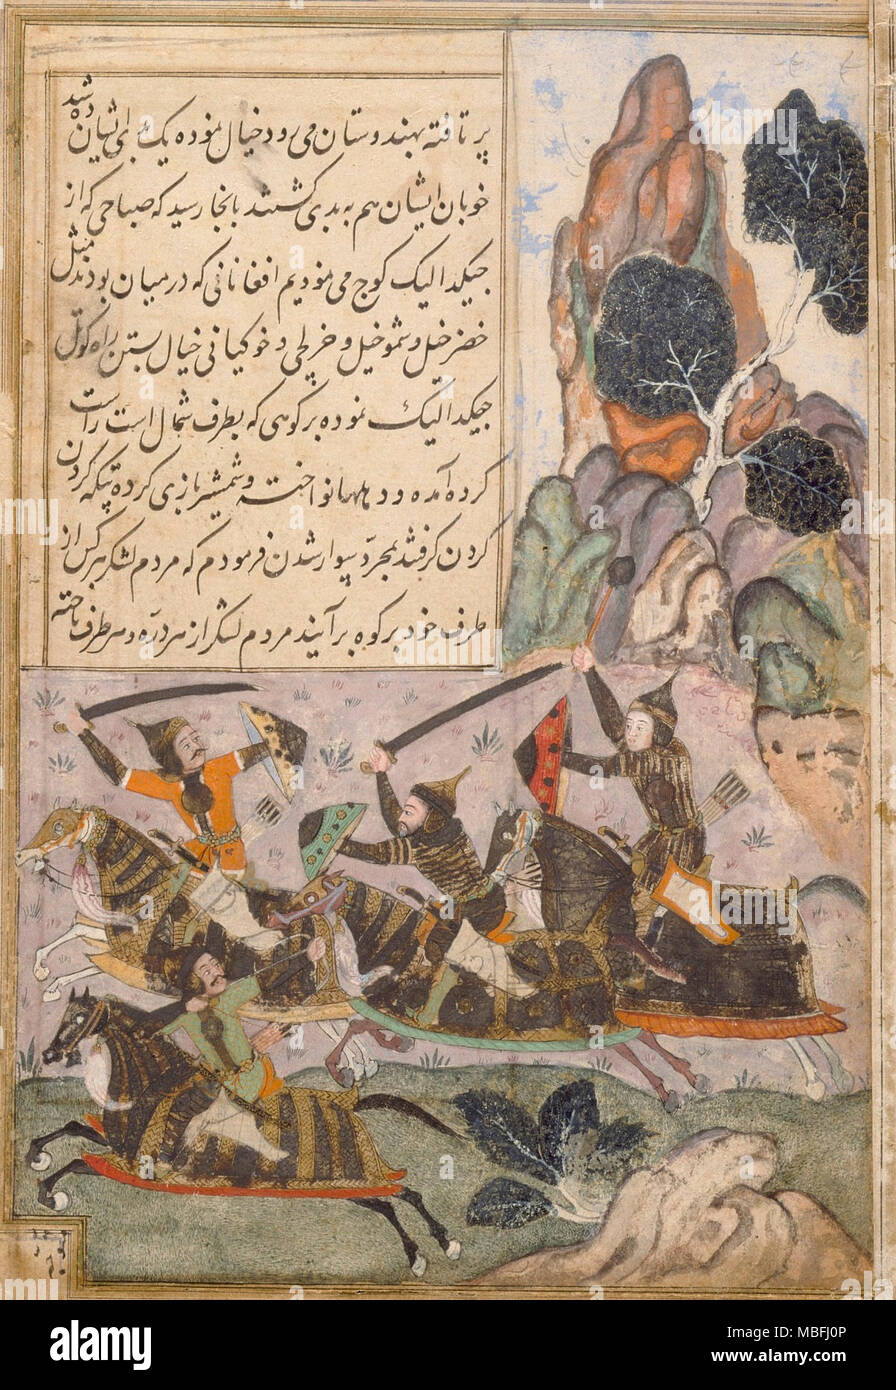 بر تافته بهندوستان می رود خیال نموده یک ده برای ایشان شد
خوبان ایشان هم به بدی گشتند بانجا رسید که صباحی که از
جیکدالیک کوچ می نمودیم افغانانی که درمیان بودند مثل
خضر خیل و شموخیل و خرلجی و خوکیانی خیال بستن راه کوتل
جیکدالیک نموده بر کوهی که بطرف شمال است راست
کرده آمده و دهلها نواخته و شمشیر بازی کرده تیکه کردن
کردن گرفتند بمجرد سوار شدن فرمودم که مردم لشکر هر کس از
طرف خود بر کوه برآیند مردم لشکر از هر دره و هر طرف تاخته
a
alamy stock photo
MBFJ0P
www.alamy.com